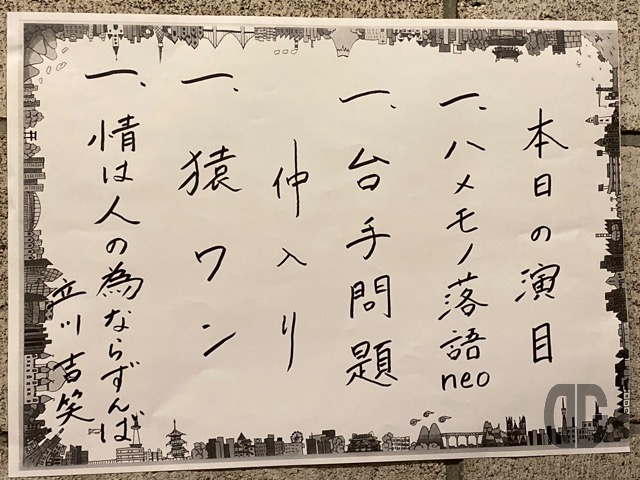 本日の演目
一、ハメモノ落語neo
一、台手問題
仲入り
一、猿ワン
一、情は人の為ならずんば
立川吉笑